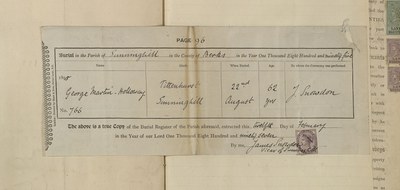 PAGE 96
Burial in the Parish of Sunninghill in the County of Berks in the Year One Thousand Eight Hundred and ninety five
Name Abode When Buried Age By whom the Ceremony was performed
George Martin Holloway Tittenhurst 22nd 62 J Snowdon
No. 766 Sunninghill August yrs
The above is a true Copy of the Burial Register of the Parish aforesaid, extracted this twelfth Day of February
in the Year of our Lord One Thousand Eight Hundred and ninety seven
By me, James Snowdon
Vicar of